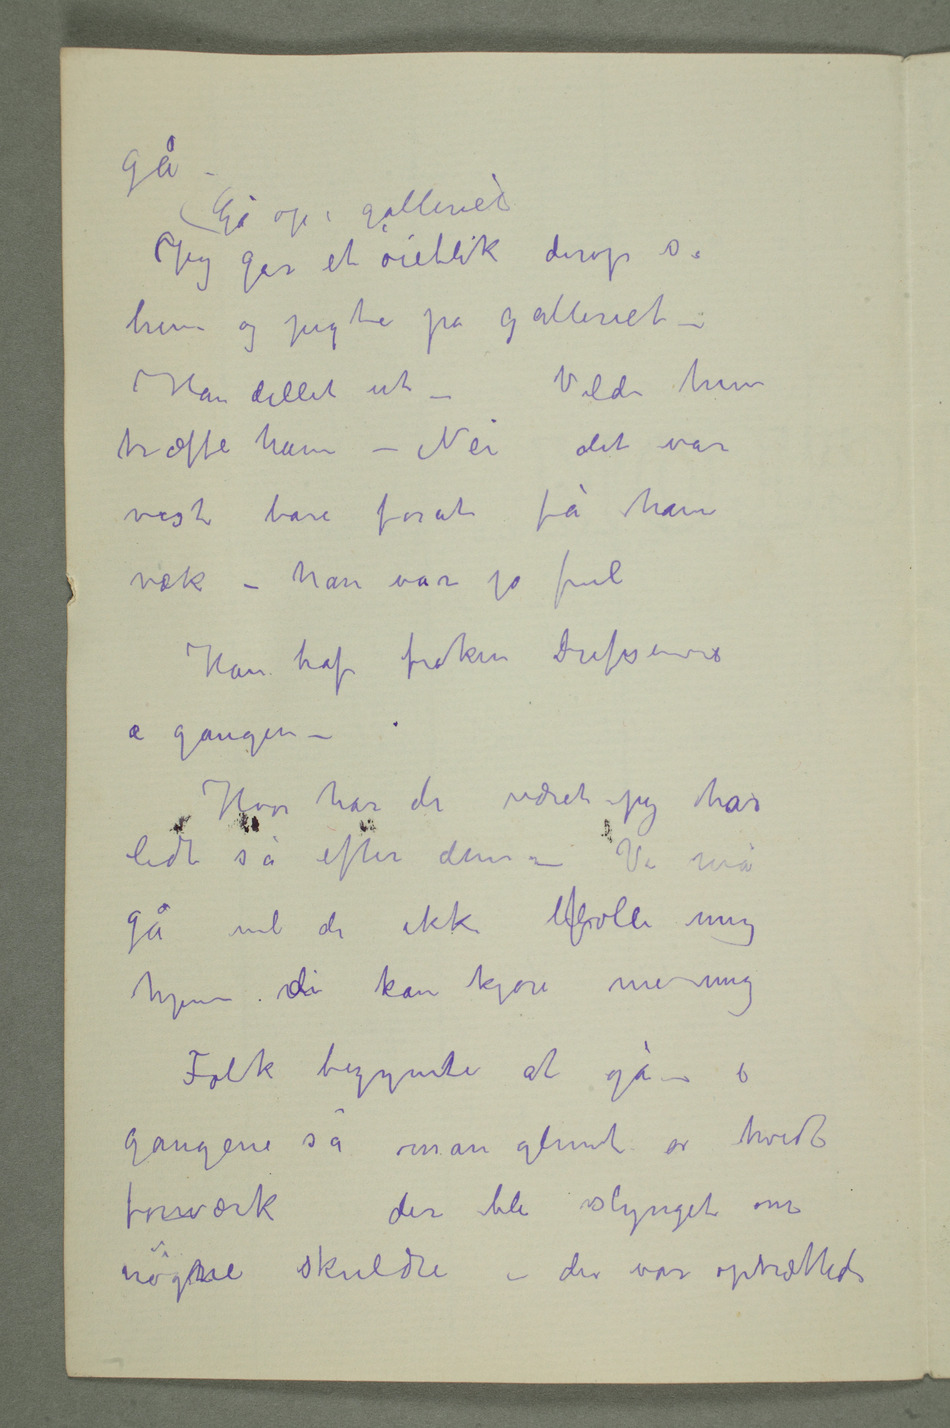 gå –
(Gå op i galleriet
Jeg går et øieblik derop sa
hun og pegte på galleriet –
Han dillet ut – Vilde hun
træffe ham – Nei det var
vest bare forat få ham
væk – han var jo ful
Han traf frøken
i gangen –
Hvor har de været jeg har
ledt så efter dem – Vi må
gå vil de ikke følle mig
hjem. di kan kjøre me mig
Folk begynte at gå – i
gangene så man glimt av hvidt
forværk der ble slynget om
nøgne skuldre – der var optrætteds